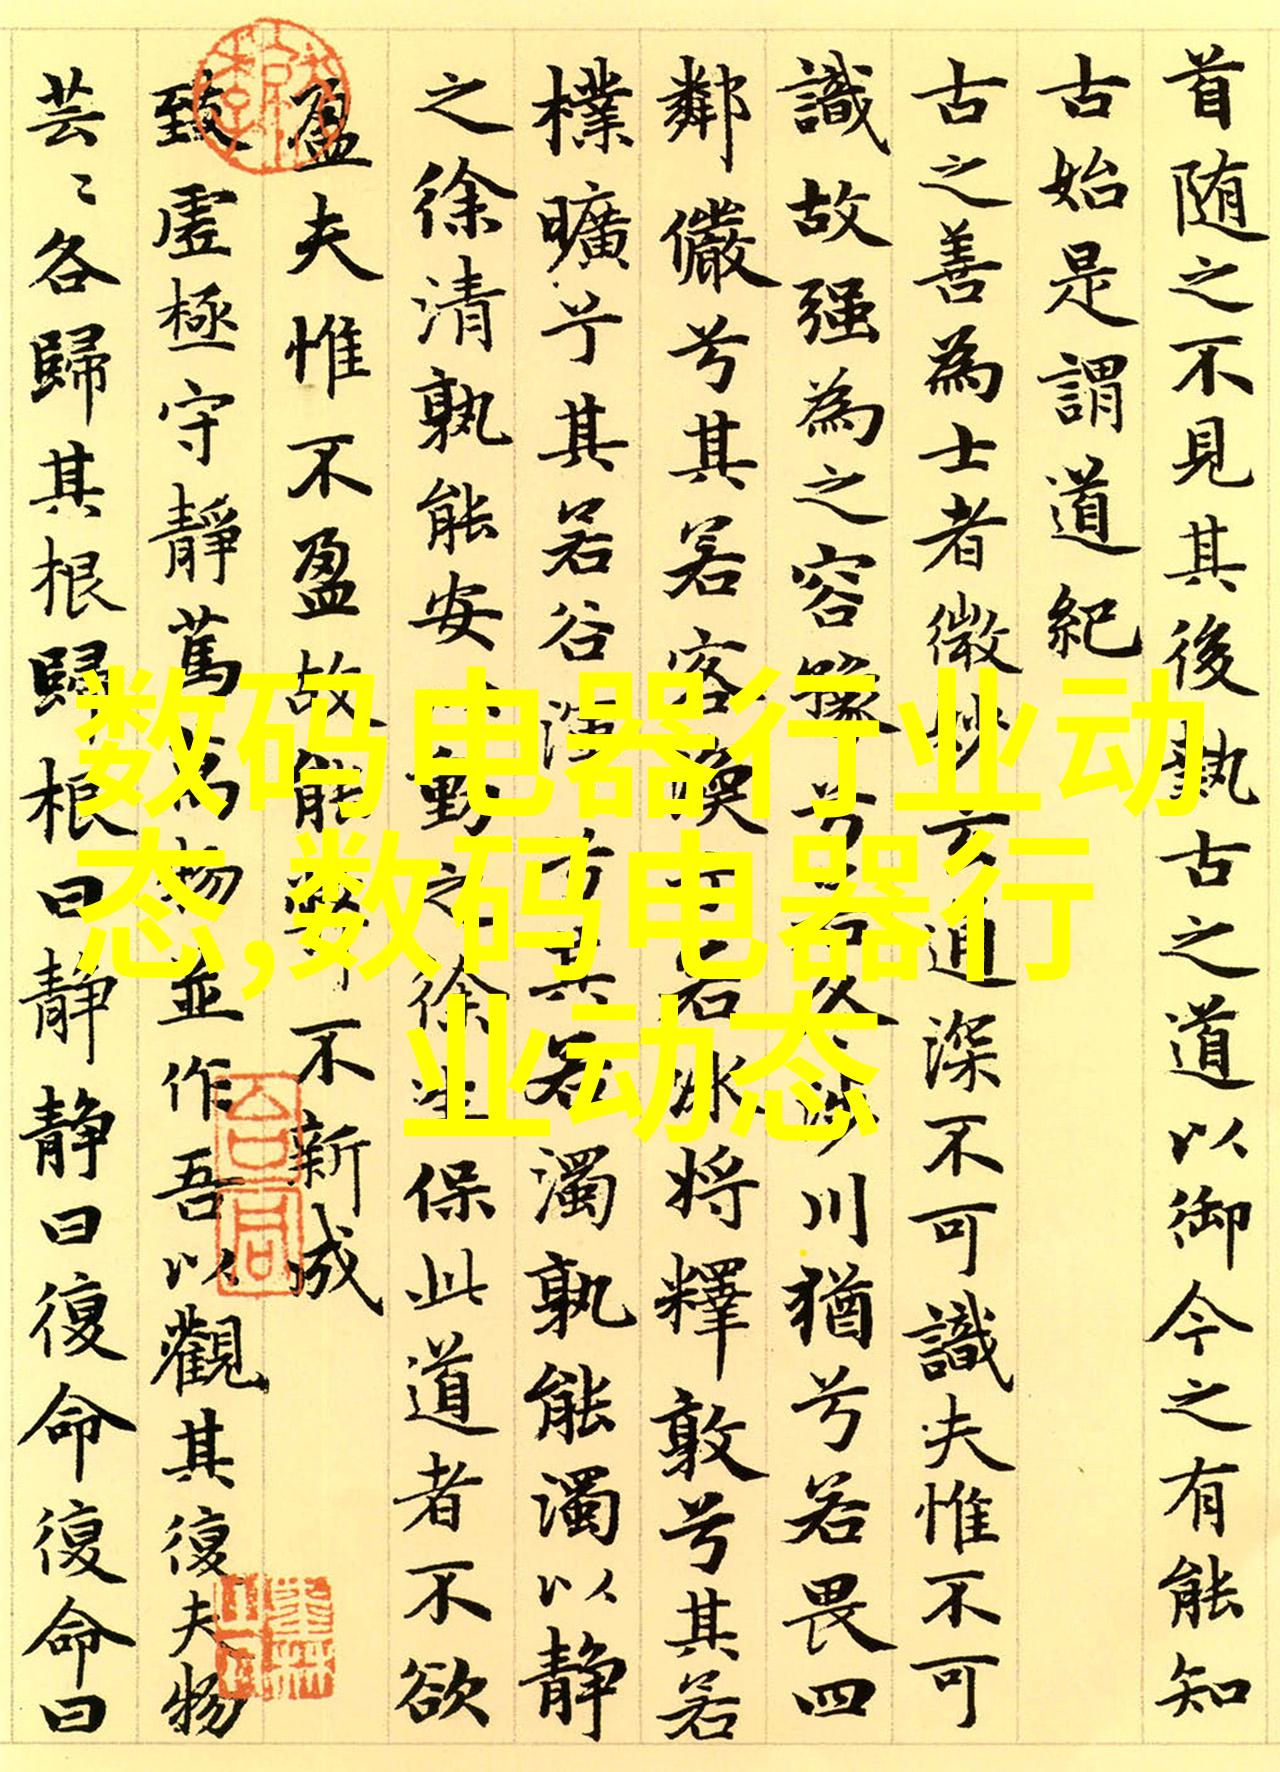 首随之不見其後執古之道以御今之有能知
古始是謂道紀
古之善為士者微妙玄通深不可識夫惟不可
識故强為之容豫兮若冬涉川猶兮若畏四
鄰儼兮其若客渙兮若冰將釋敦兮其若
樸曠兮其若谷渾兮其若濁孰能濁以静
之徐清孰能安以動之徐生保此道者不欲
盈夫惟不盈故能弊不新成
致虛極守靜篤萬物並作吾以觀其復夫物
芸〻各歸其根歸根曰静静曰復命復命曰
数码电器行业动
态,数码电器行
业动态